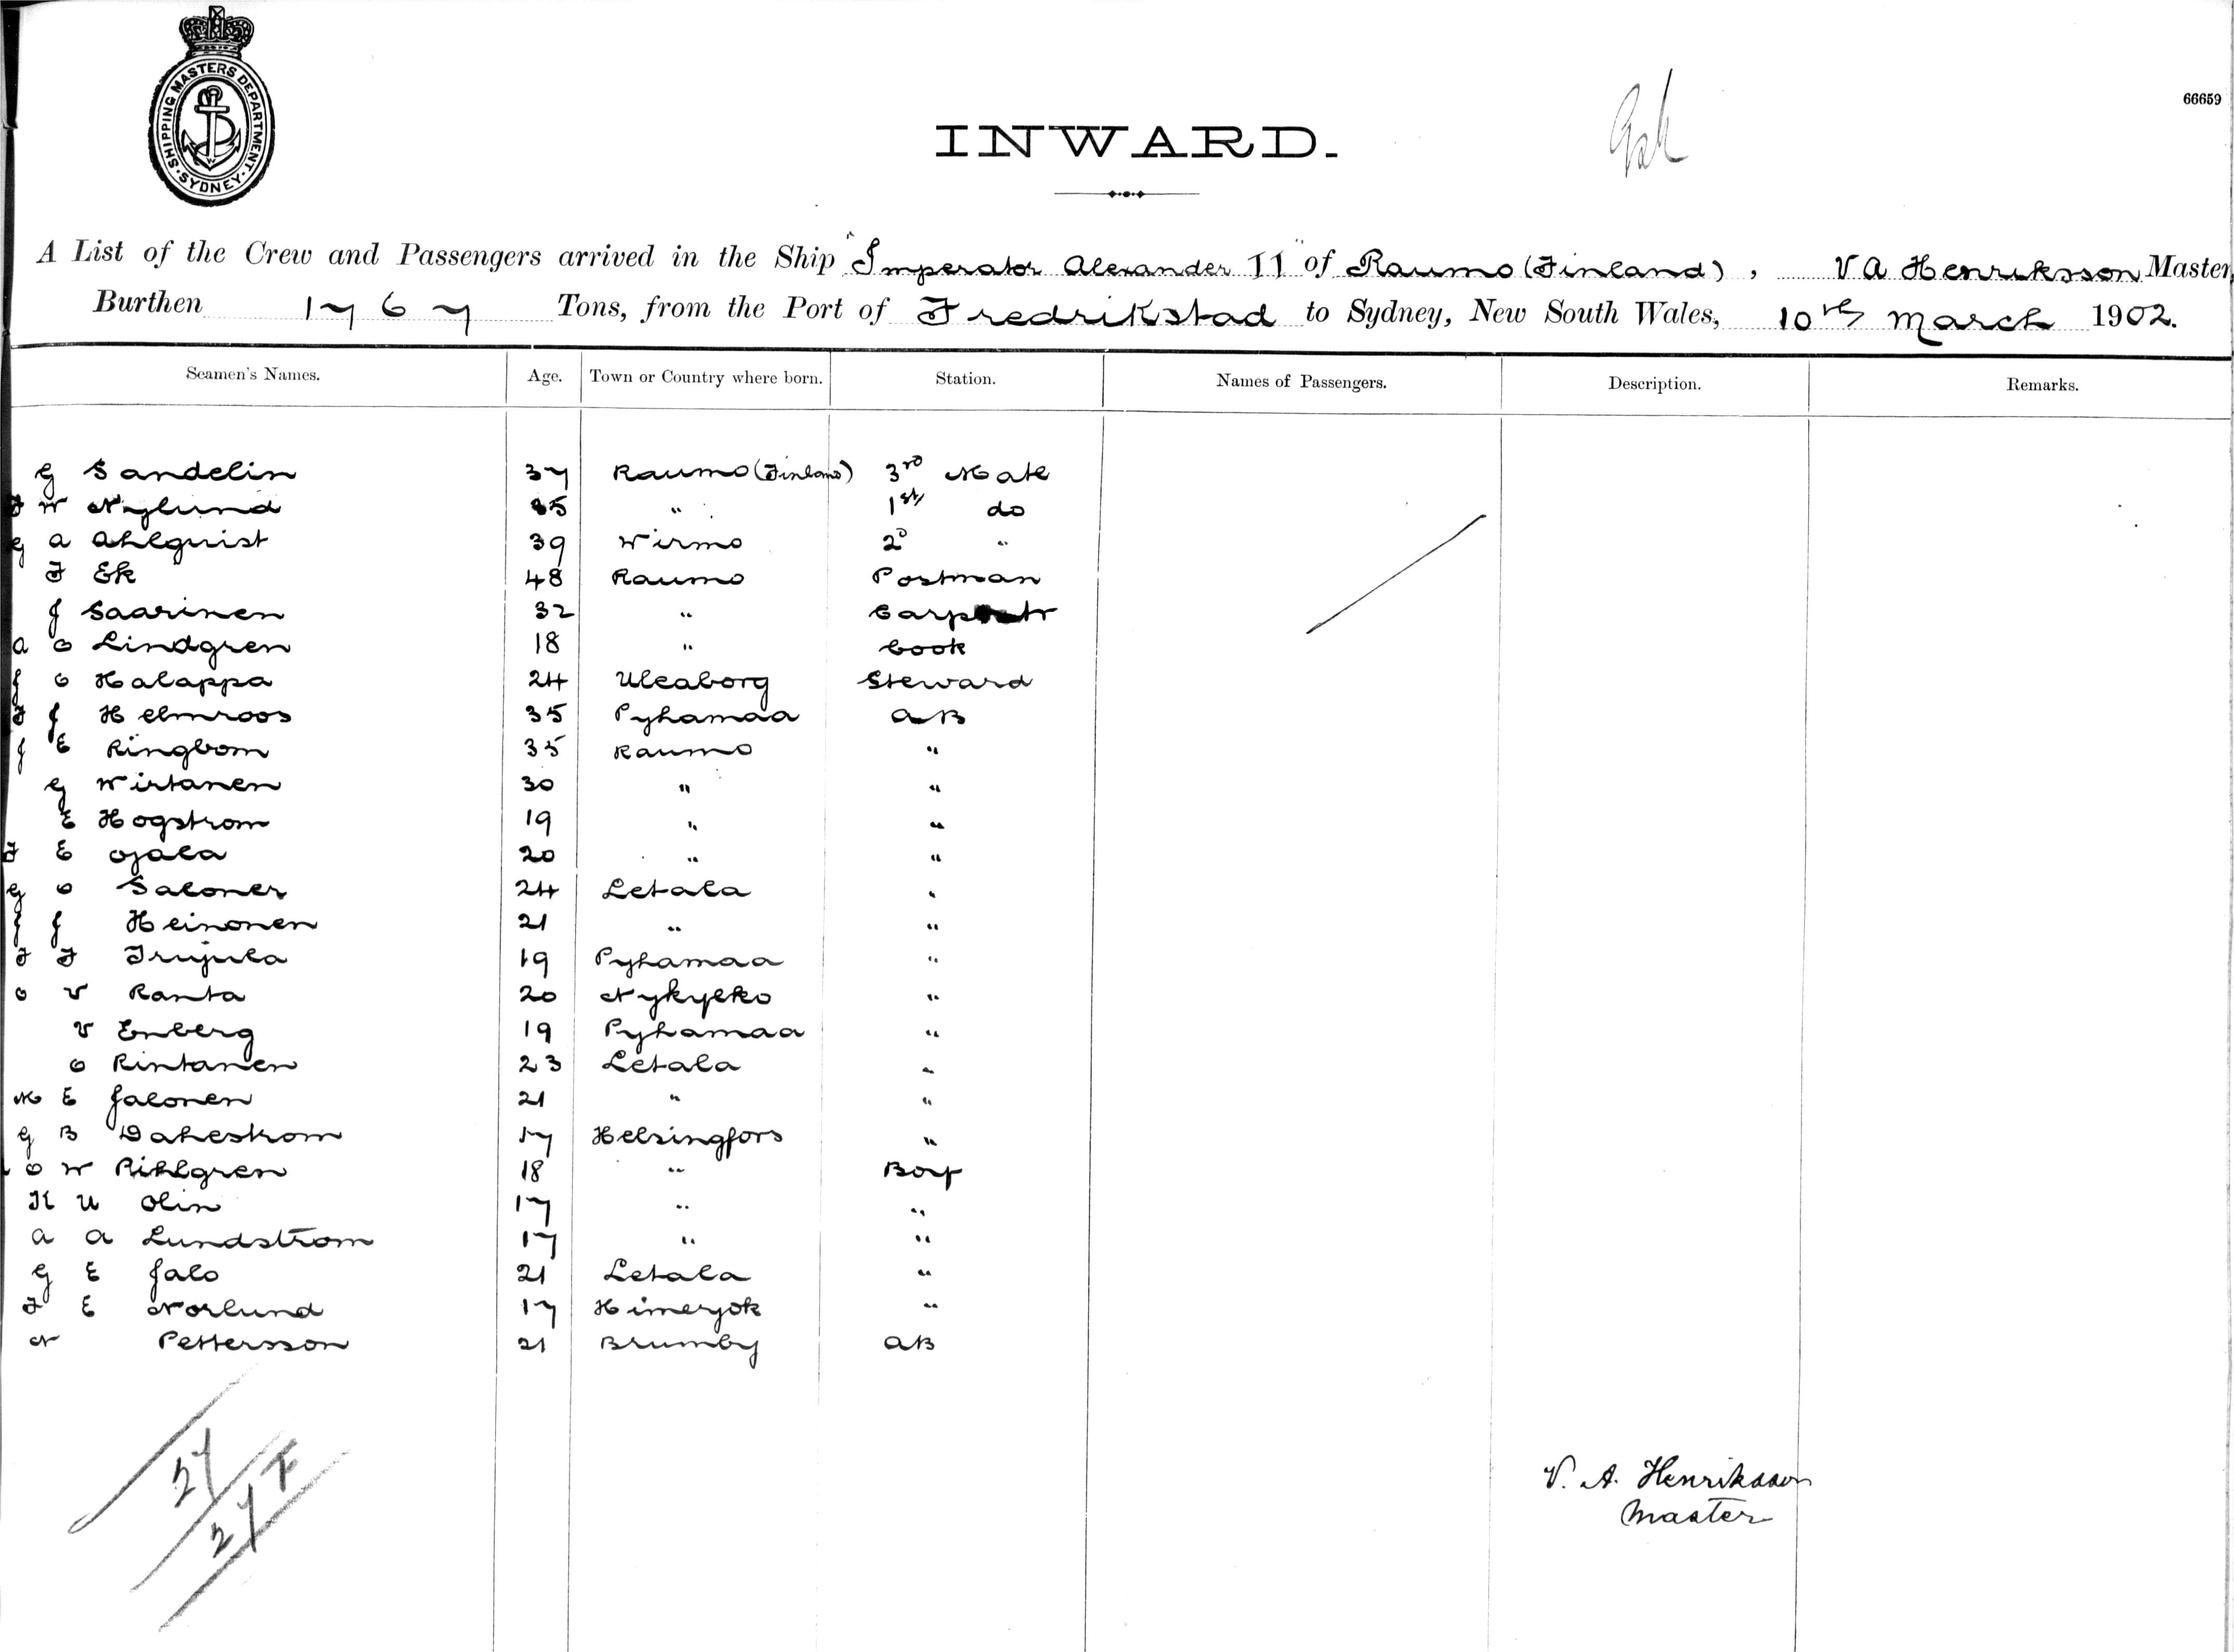 SHIPPING MASTERS DEPARTMENT
SYDNEY
66659
INWARD.
A List of the Crew and Passengers arrived in the Ship "Imperator Alexander II" of Raumo (Finland), V A Henriksson Master,
Burthen 1767 Tons, from the Port of Fredrikstad to Sydney, New South Wales, 10th March 1902.
Seamen's Names. Age. Town or Country where born. Station. Names of Passengers. Description. Remarks.
G Sandelin 37 Raumo (Finland) 3rd Mate
F W Nylund 35 " 1st do
G A Ahlquist 39 Wirmo 2D "
F Ek 48 Raumo Postman
J Saarinen 32 " Carpentr
A O Lindgren 18 " Cook
J O Halappa 24 Uleaborg Steward
F J Helmroos 35 Pyhamaa AB
J E Ringbom 35 Raumo "
G Wirtanen 30 " "
E Hogstrom 19 " "
F E Ojala 20 " "
G O Saloner 24 Letala "
J J Heinonen 21 " "
F F Irujula 19 Pyhamaa "
O V Ranta 20 Nykyrko "
V Enberg 19 Pyhamaa "
O Rintanen 23 Letala "
M E Jalonen 21 " "
G B Dahlstrom 17 Helsingfors "
O W Rihlgren 18 " Boy
K U Olin 17 " "
A A Lundstrom 17 " "
G E Jalo 21 Letala "
F E Norlund 17 Himerjok "
N Pettersson 21 Brumby AB
27
27 F
V. A. Henriksson
Master